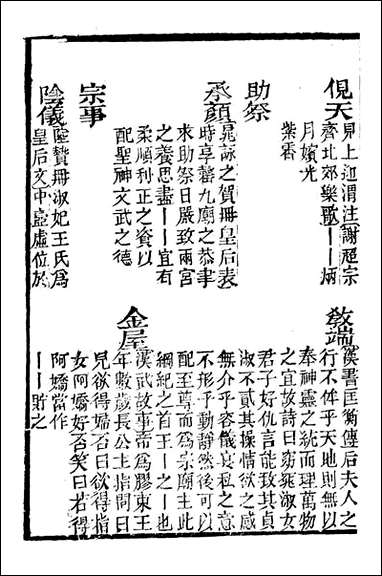 俔天見上迎渭注謝超宗
齊北郊樂歌——炳
月嬪光
紫霄
助祭
承顏晁詠之賀冊皇后表
時享馨九廟之恭聿
求助祭日嚴致兩宮
之養思盡——宜有
柔順利正之資以
配聖神文武之德
宗事
陰儀陸贄冊淑妃王氏爲
皇后文中壼虛位於
教端漢書匡衡傳后夫人之
行不侔乎天地則無以
奉神靈之統而理萬物
之宜故詩曰窈窕淑女
君子好仇言能致其貞
淑不貳其操情欲之感
無介乎容儀宴私之意
不形乎動靜然後可以
配至尊而爲宗廟主此
綱紀之首王之——也
金屋漢武故事帝爲膠東王
年數歲長公主指問曰
兒欲得婦否曰欲得指
女阿嬌好否笑曰若得
阿嬌當作
——貯之